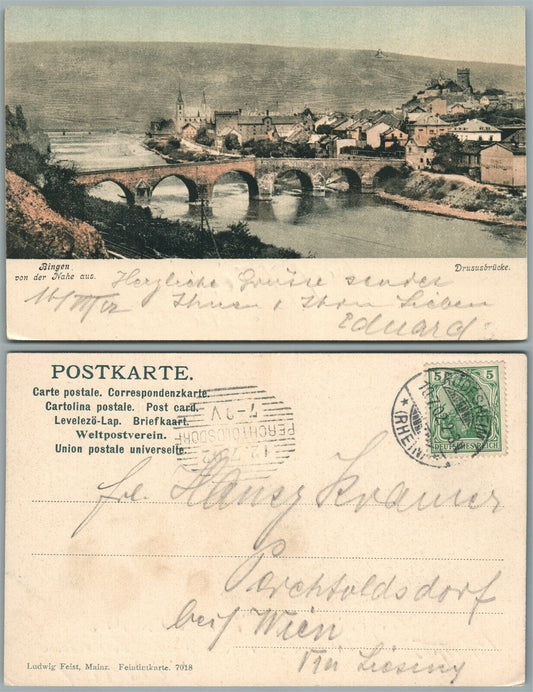 Bingen
von der Nahe aus.
Drususbrücke.
Herzliche Grüße sendet
Ihnen & Ihren Lieben
Eduard
POSTKARTE.
Carte postale. Correspondenzkarte.
Cartolina postale. Post card.
Levelezö-Lap. Briefkaart.
Weltpostverein.
Union postale universelle.
PERCHTOLDSDORF
5 5
DEUTSCHES REICH
Kramer
Perchtoldsdorf
bei Wien
Liesing
Ludwig Feist, Mainz. Feintintkarte. 7018